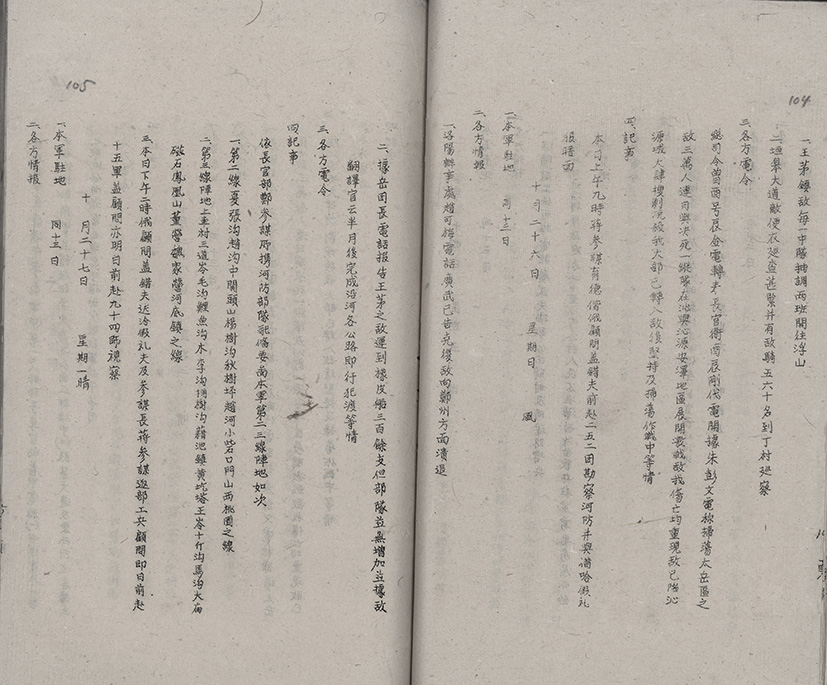 104
一、王茅鎮敵每一中隊抽調兩班開往浮山
二、垣皋大道敵便衣巡查甚緊並有敵騎五六十名到丁村巡察
三、各方電令
總司令曾酉號辰僉電轉奉長官衛酉辰剛代電開據朱彭文電稱掃蕩太岳區之
敵三萬人連日與決死一縱隊在沁縣沁源安澤地區展開激戰敵我傷亡均重現敵已陷沁
源城大肆搜剿洗殺我大部已轉入敵後堅持反掃蕩作戰中等情
四、記事
本日上午九時蔣參謀育德偕俄顧問蓋錯夫前赴二五二團勘察河防并與偕哈假礼
相晤面
十月二十六日 星期日 風
一、本軍駐地
同十三日
二、各方情報
一、洛陽辦事處趙可楷電話廣武已告克復敵向鄭州方面潰退
105
二、據岳團長電話報告王茅之敵運到橡皮船三百餘支但部隊並無增加並據敵
翻譯官云半月後完成沿河各公路即行犯渡等情
三、各方電令
四、記事
依長官部鄭參謀所携河防部隊配備要尚本軍第二三線陣地如次
一、第二線夏張溝趙溝中關頭山楊樹溝秋樹坪趙河小砦口門山西桃園之線
二、第三線陣地上圭村三道岑毛溝鯉魚溝木李溝桐樹溝藉池鎮黃坑塔王岑十斤溝馬溝大庙
破石鳳凰山董營號家營河底鎮之線
三、本日下午二時俄顧問蓋錯夫送洽假礼夫及參謀長蔣參謀返部工夾顧問即日前赴
十五軍蓋顧問亦明日前赴九十四師視察
十月二十七日 星期一 晴
一、本軍駐地
同十三日
二、各方情報